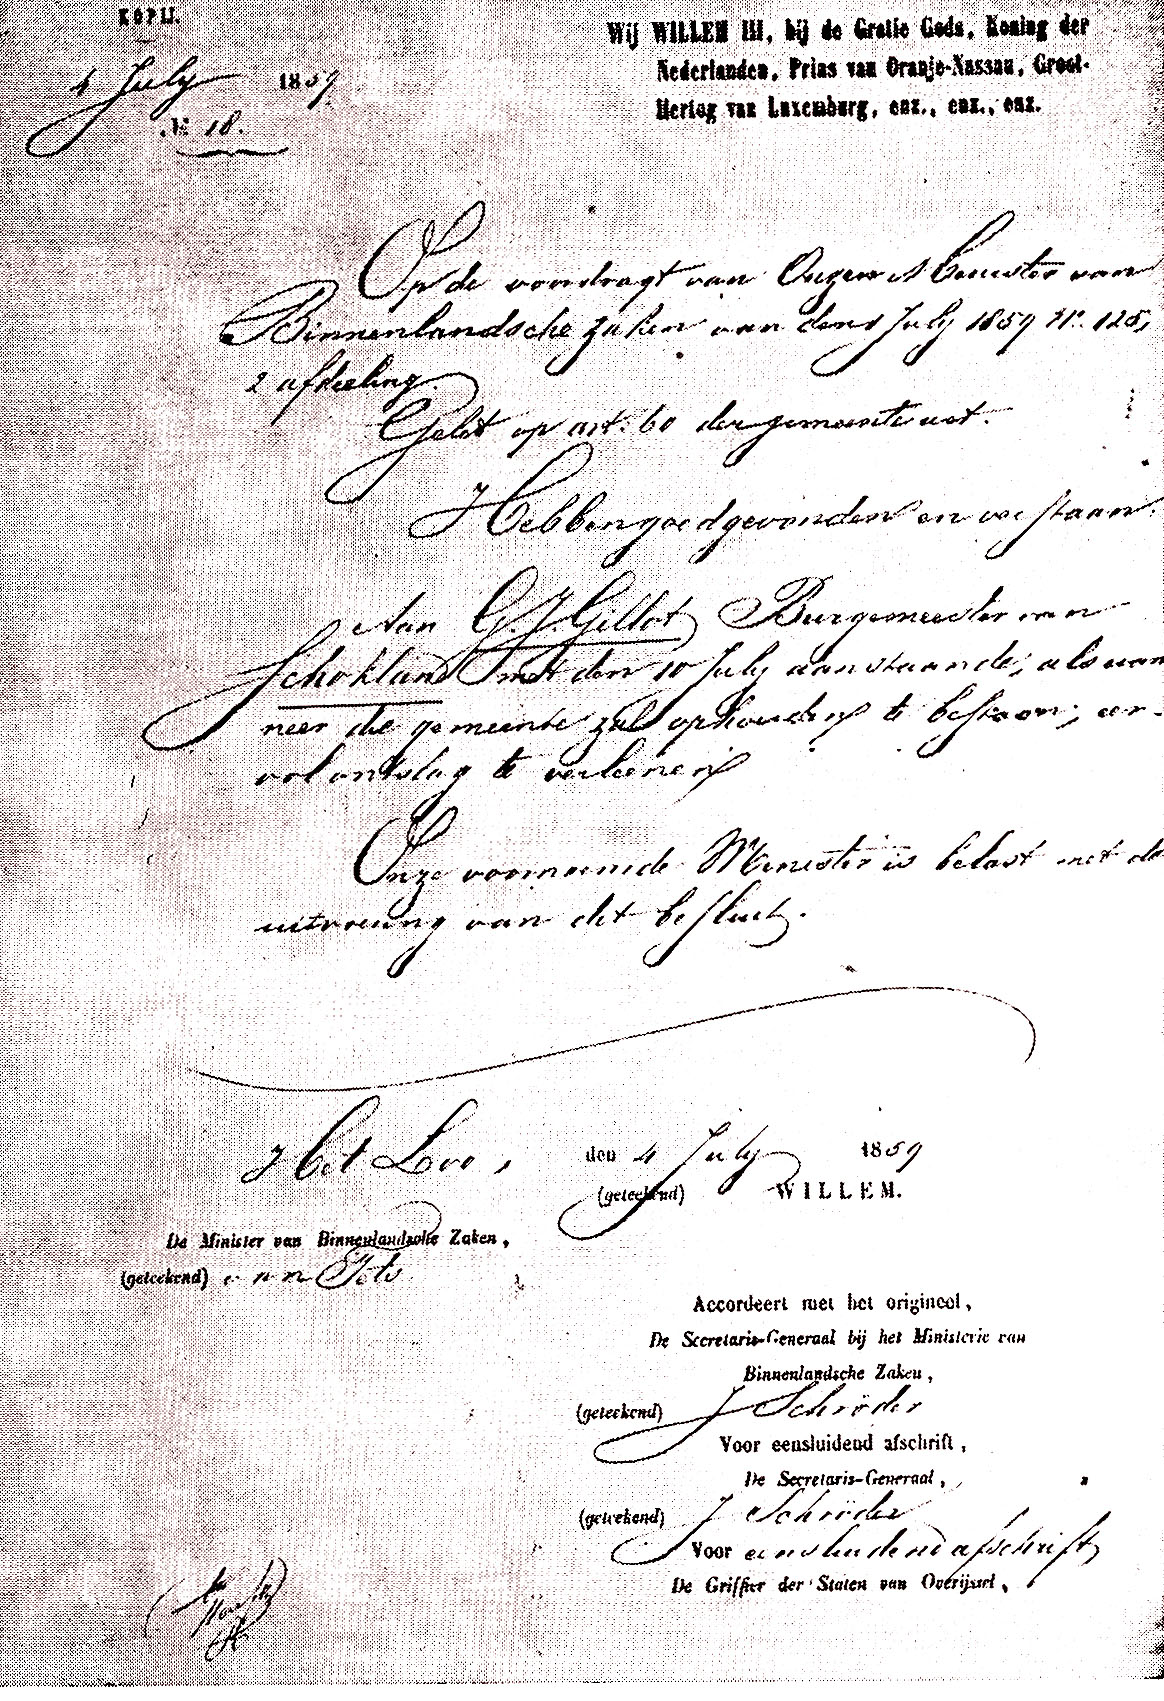 KOPIJ.
4 July 1859
N° 18.
Wij WILLEM III, bij de Gratie Gods, Koning der
Nederlanden, Prins van Oranje-Nassau, Groot-
Hertog van Luxemburg, enz., enz., enz.
Op de voordragt van Onzen Minister van
Binnenlandsche Zaken van den 1 July 1859 N°. 125,
2 afdeeling.
Gelet op art. 60 der gemeentewet.
Hebben goedgevonden en verstaan.
Aan G. J. Gillot Burgemeester van
Schokland met den 10 July aanstaande, als wan
neer die gemeente zal ophouden te bestaan, eer-
vol ontslag te verleenen
Onze voornoemde Minister is belast met de
uitvoering van dit besluit.
Het Loo, den 4 July 1859
(geteekend) WILLEM.
De Minister van Binnenlandsche Zaken,
(geteekend) van Tets
Accordeert met het origineel,
De Secretaris-Generaal bij het Ministerie van
Binnenlandsche Zaken,
(geteekend) J Schröder
Voor eensluidend afschrift,
De Secretaris-Generaal,
(geteekend) J Schröder
Voor eensluidend afschrift
De Griffier der Staten van Overijssel,